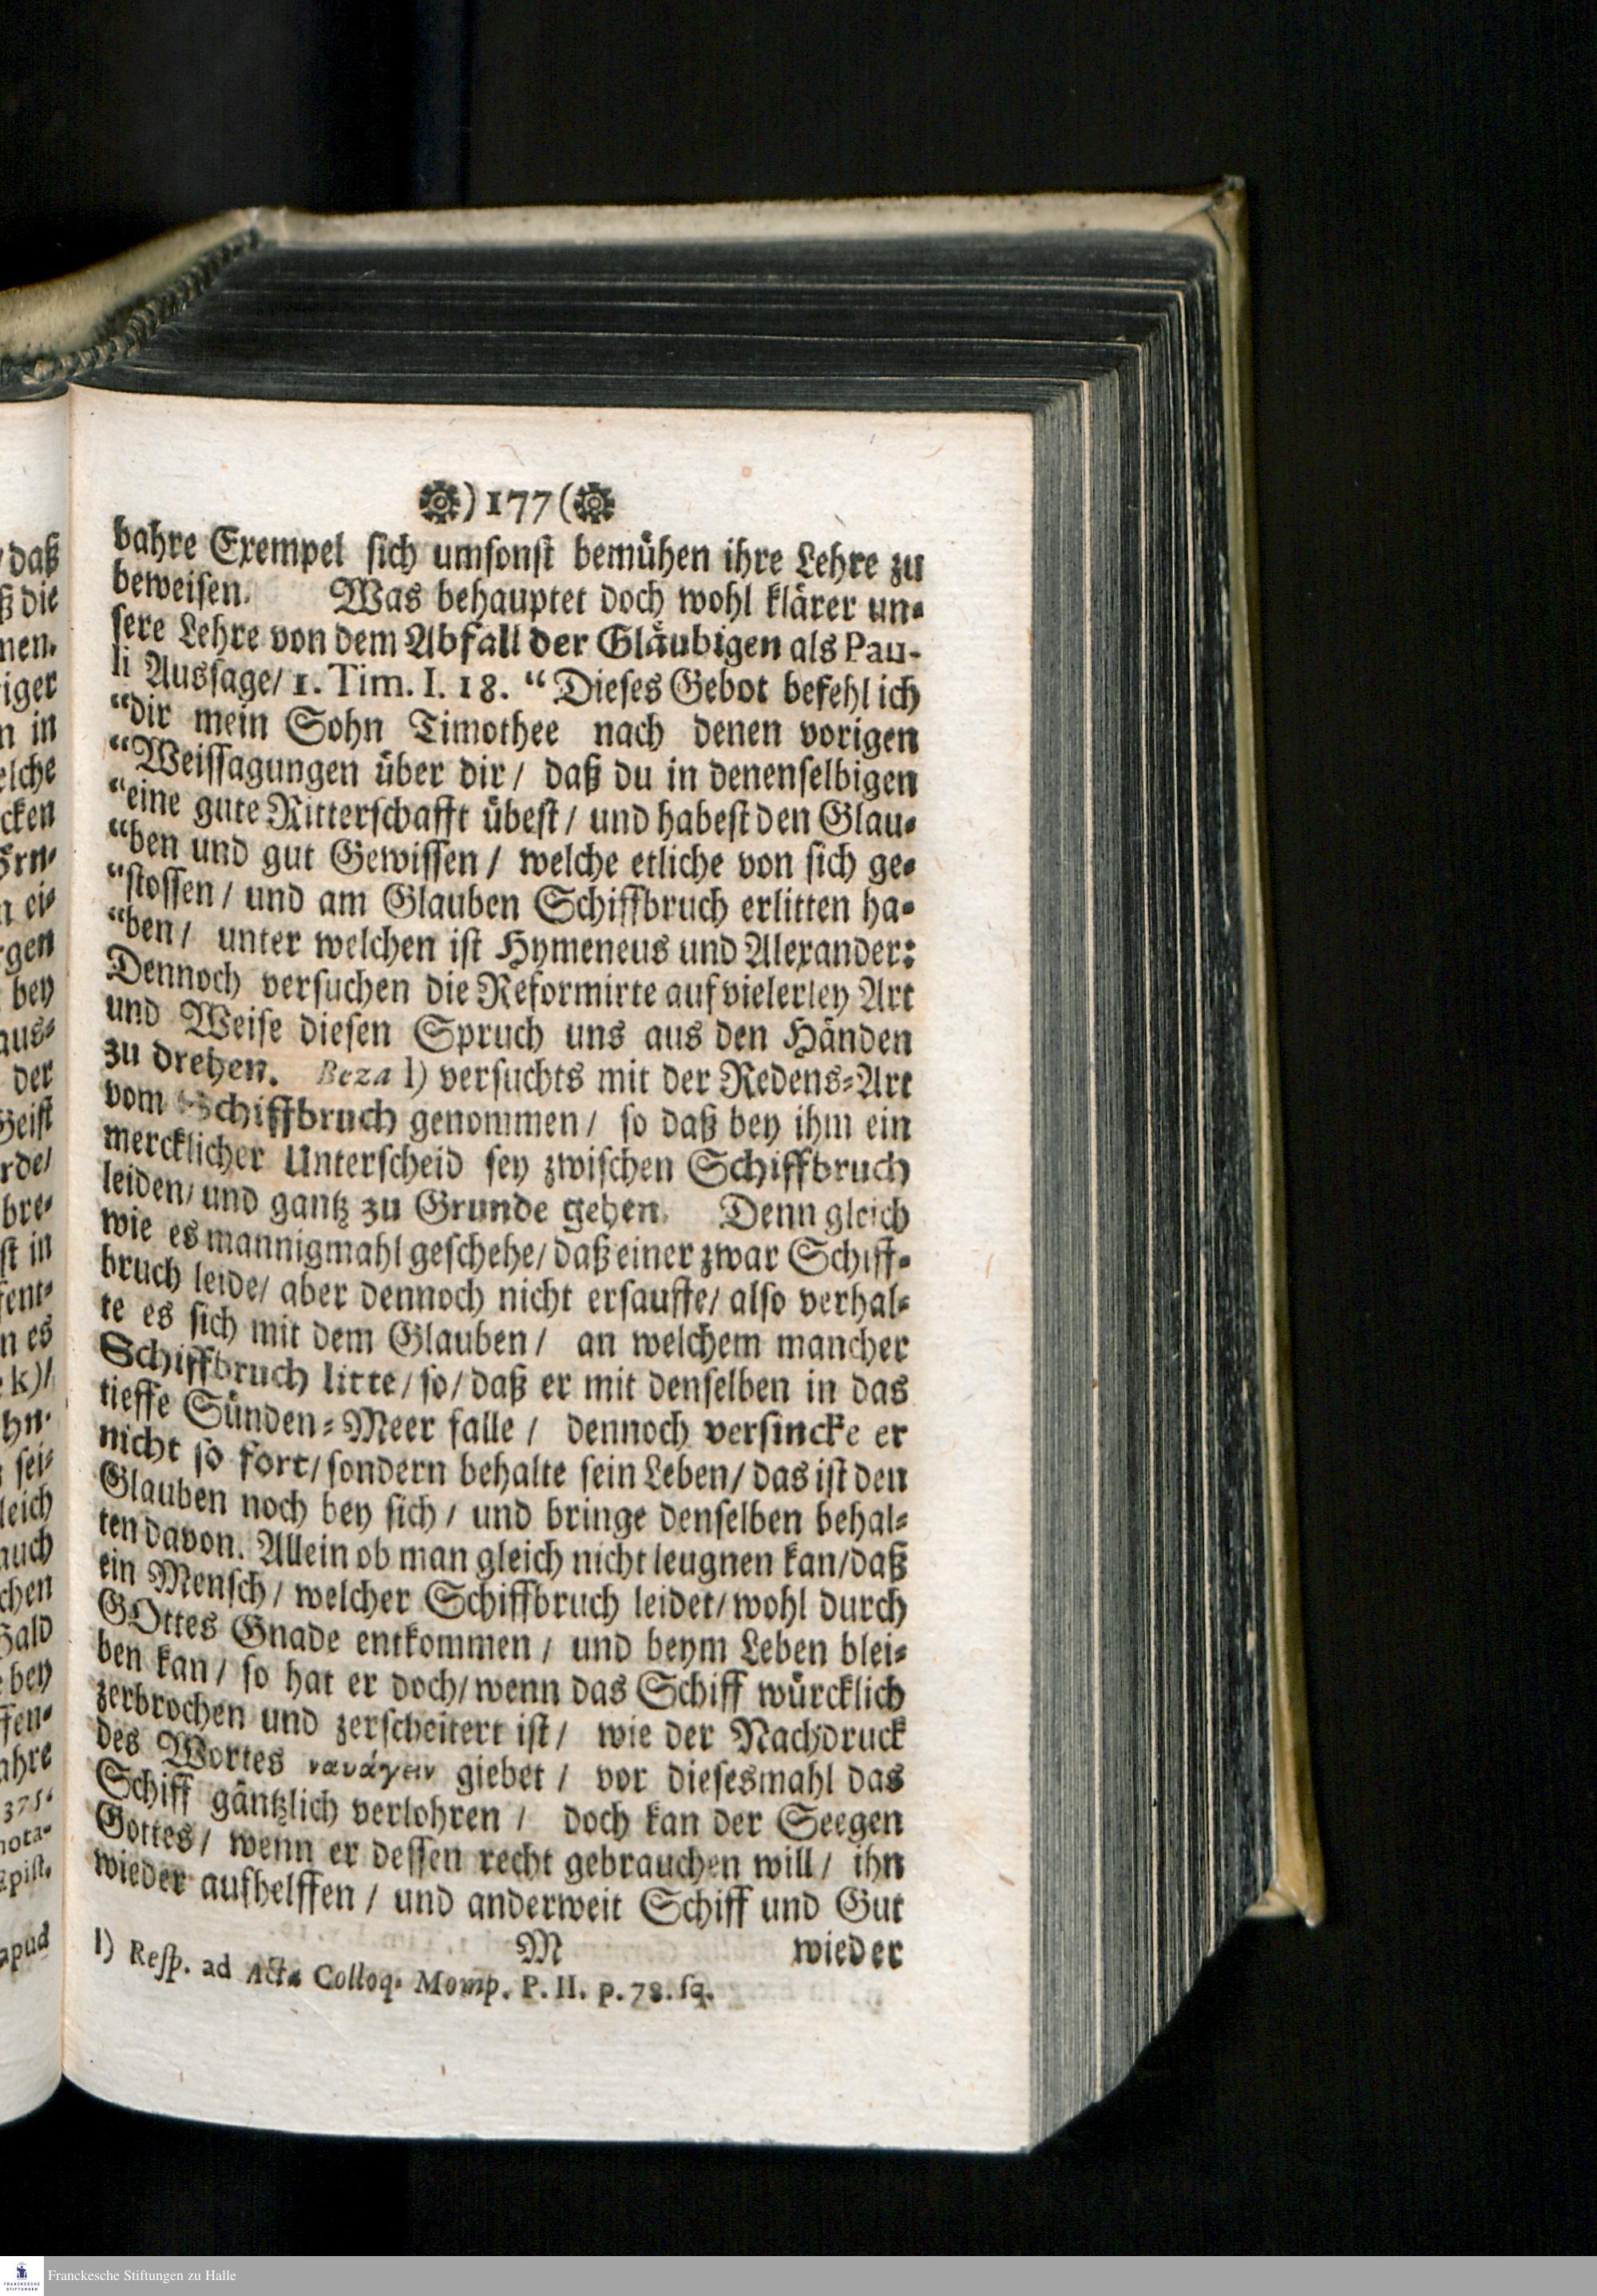 ) 177 (
bahre Exempel sich umsonst bemühen ihre Lehre zu
beweisen. Was behauptet doch wohl klärer un-
sere Lehre von dem Abfall der Gläubigen als Pau-
li Aussage/ 1. Tim. I. 18. “Dieses Gebot befehl ich
“dir mein Sohn Timothee nach denen vorigen
“Weissagungen über dir/ daß du in denenselbigen
“eine gute Ritterschafft übest/ und habest den Glau-
“ben und gut Gewissen/ welche etliche von sich ge-
“stossen/ und am Glauben Schiffbruch erlitten ha-
“ben/ unter welchen ist Hymeneus und Alexander:
Dennoch versuchen die Reformirte auf vielerley Art
und Weise diesen Spruch uns aus den Händen
zu drehen. Beza l) versuchts mit der Redens-Art
vom Schiffbruch genommen/ so daß bey ihm ein
mercklicher Unterscheid sey zwischen Schiffbruch
leiden/ und gantz zu Grunde gehen. Denn gleich
wie es mannigmahl geschehe/ daß einer zwar Schiff-
bruch leide/ aber dennoch nicht ersauffe/ also verhal-
te es sich mit dem Glauben/ an welchem mancher
Schiffbruch litte/ so/ daß er mit denselben in das
tieffe Sünden-Meer falle/ dennoch versincke er
nicht so fort/ sondern behalte sein Leben/ das ist den
Glauben noch bey sich/ und bringe denselben behal-
ten davon. Allein ob man gleich nicht leugnen kan/ daß
ein Mensch/ welcher Schiffbruch leidet/ wohl durch
GOttes Gnade entkommen/ und beym Leben blei-
ben kan/ so hat er doch/ wenn das Schiff würcklich
zerbrochen und zerscheitert ist/ wie der Nachdruck
des Wortes ναυάγειν giebet/ vor diesesmahl das
Schiff gäntzlich verlohren/ doch kan der Seegen
Gottes/ wenn er dessen recht gebrauchen will/ ihn
wieder aufhelffen/ und anderweit Schiff und Gut
M wieder
l) Resp. ad Acta Colloq. Momp. P. II. p. 78. sq.
Franckesche Stiftungen zu Halle